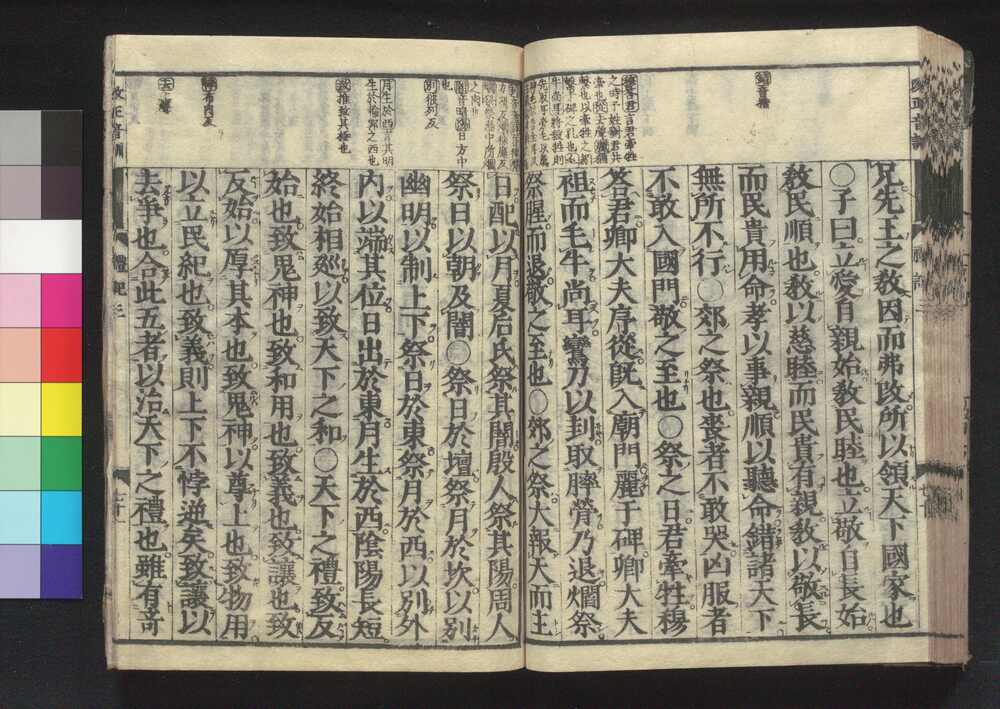 錯音措
兄先王之教因而弗改所以領天下國家也
○子曰立愛自親始教民睦也立敬自長始
教民順也教以慈睦而民貴有親教以敬長
而民貴用命孝以事親順以聽命錯諸天下
無所不行○郊之祭也喪者不敢哭凶服者
不敢入國門敬之至也○祭之日君牽牲穆
答君卿大夫序從既入廟門麗于碑卿大夫
祖而毛牛尚耳鸞刀以刲取膟膋乃退爓祭
祭腥而退敬之至也○郊之祭大報天而主
別彼列反
月生於西言其明
生於輪郭之西也
致推致其極也
悖布內反
日配以月夏后氏祭其闇殷人祭其陽周人
祭日以朝及闇○祭日於壇祭月於坎以別
幽明以制上下祭日於東祭月於西以別外
內以端其位日出於東月生於西陰陽長短
終始相廵以致天下之和○天下之禮致反
始也致鬼神也致和用也致義也致讓也致
反始以厚其本也致鬼神以尊上也致物用
以立民紀也致義則上下不悖逆矣致讓以
去爭也合此五者以治天下之禮也雖有奇
改正音訓
禮記三